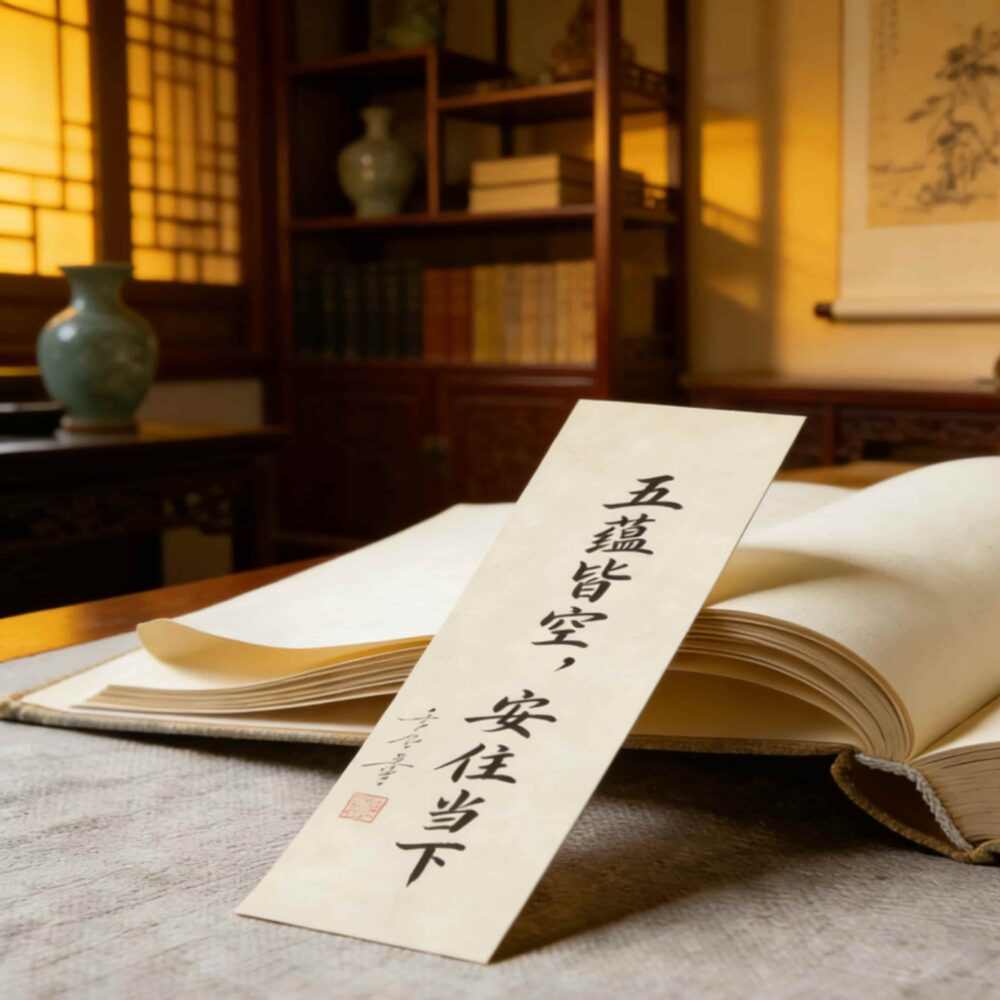 五蕴皆空，
安住当下